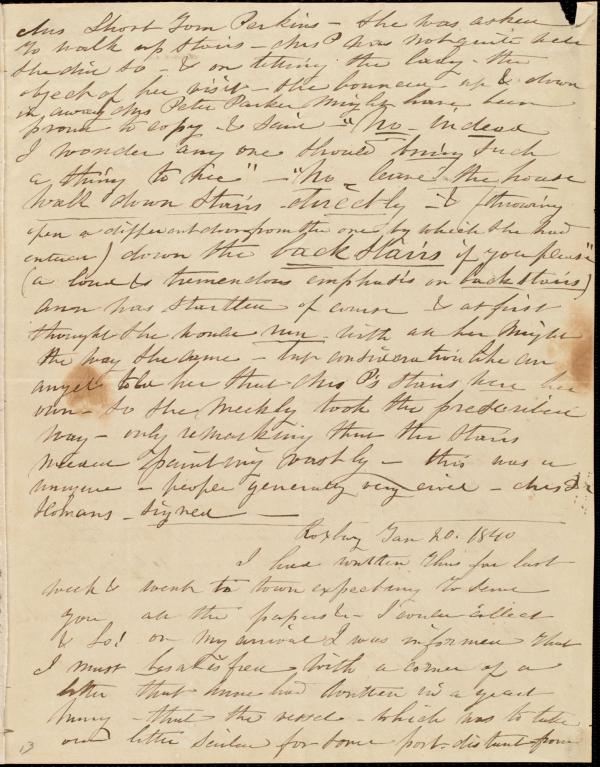 Mrs Short Tom Perkins - she was asked
to walk up stairs - Mrs P was not quite well
She did so - & on telling the lady - the
object of her visit - she bounced up & down
in a way Mrs Peter Parker might have been
proud to copy - & said - "No - Indeed
I wonder any one should bring such
a thing to me" - "No - leave the house
walk down Stairs - directly - & (throwing
open a different door from the one by which she had
entered) down the back stairs if you please"
(a loud & tremendous emphasis on back stairs)
Ann was startled of course & at first
thought she would run with all her might
the way she came - but consideration like an
angel told her that Mrs P's stairs were her
own - so she meekly took the prescribed
way - only remarking that the stairs
needed painting vastly - this was a
- people generally very civil - Mrs
signed -
Roxbury Jan 20. 1840
I had written thus far last
week & went to town expecting to send
you all the papers &c - I could collect
& Lo! on my arrival I was informed that
I must be satisfied with a corner of a
letter that Anne had written in a great
hurry - that the vessel - which was to take
our letter sailed for some port distant from
13